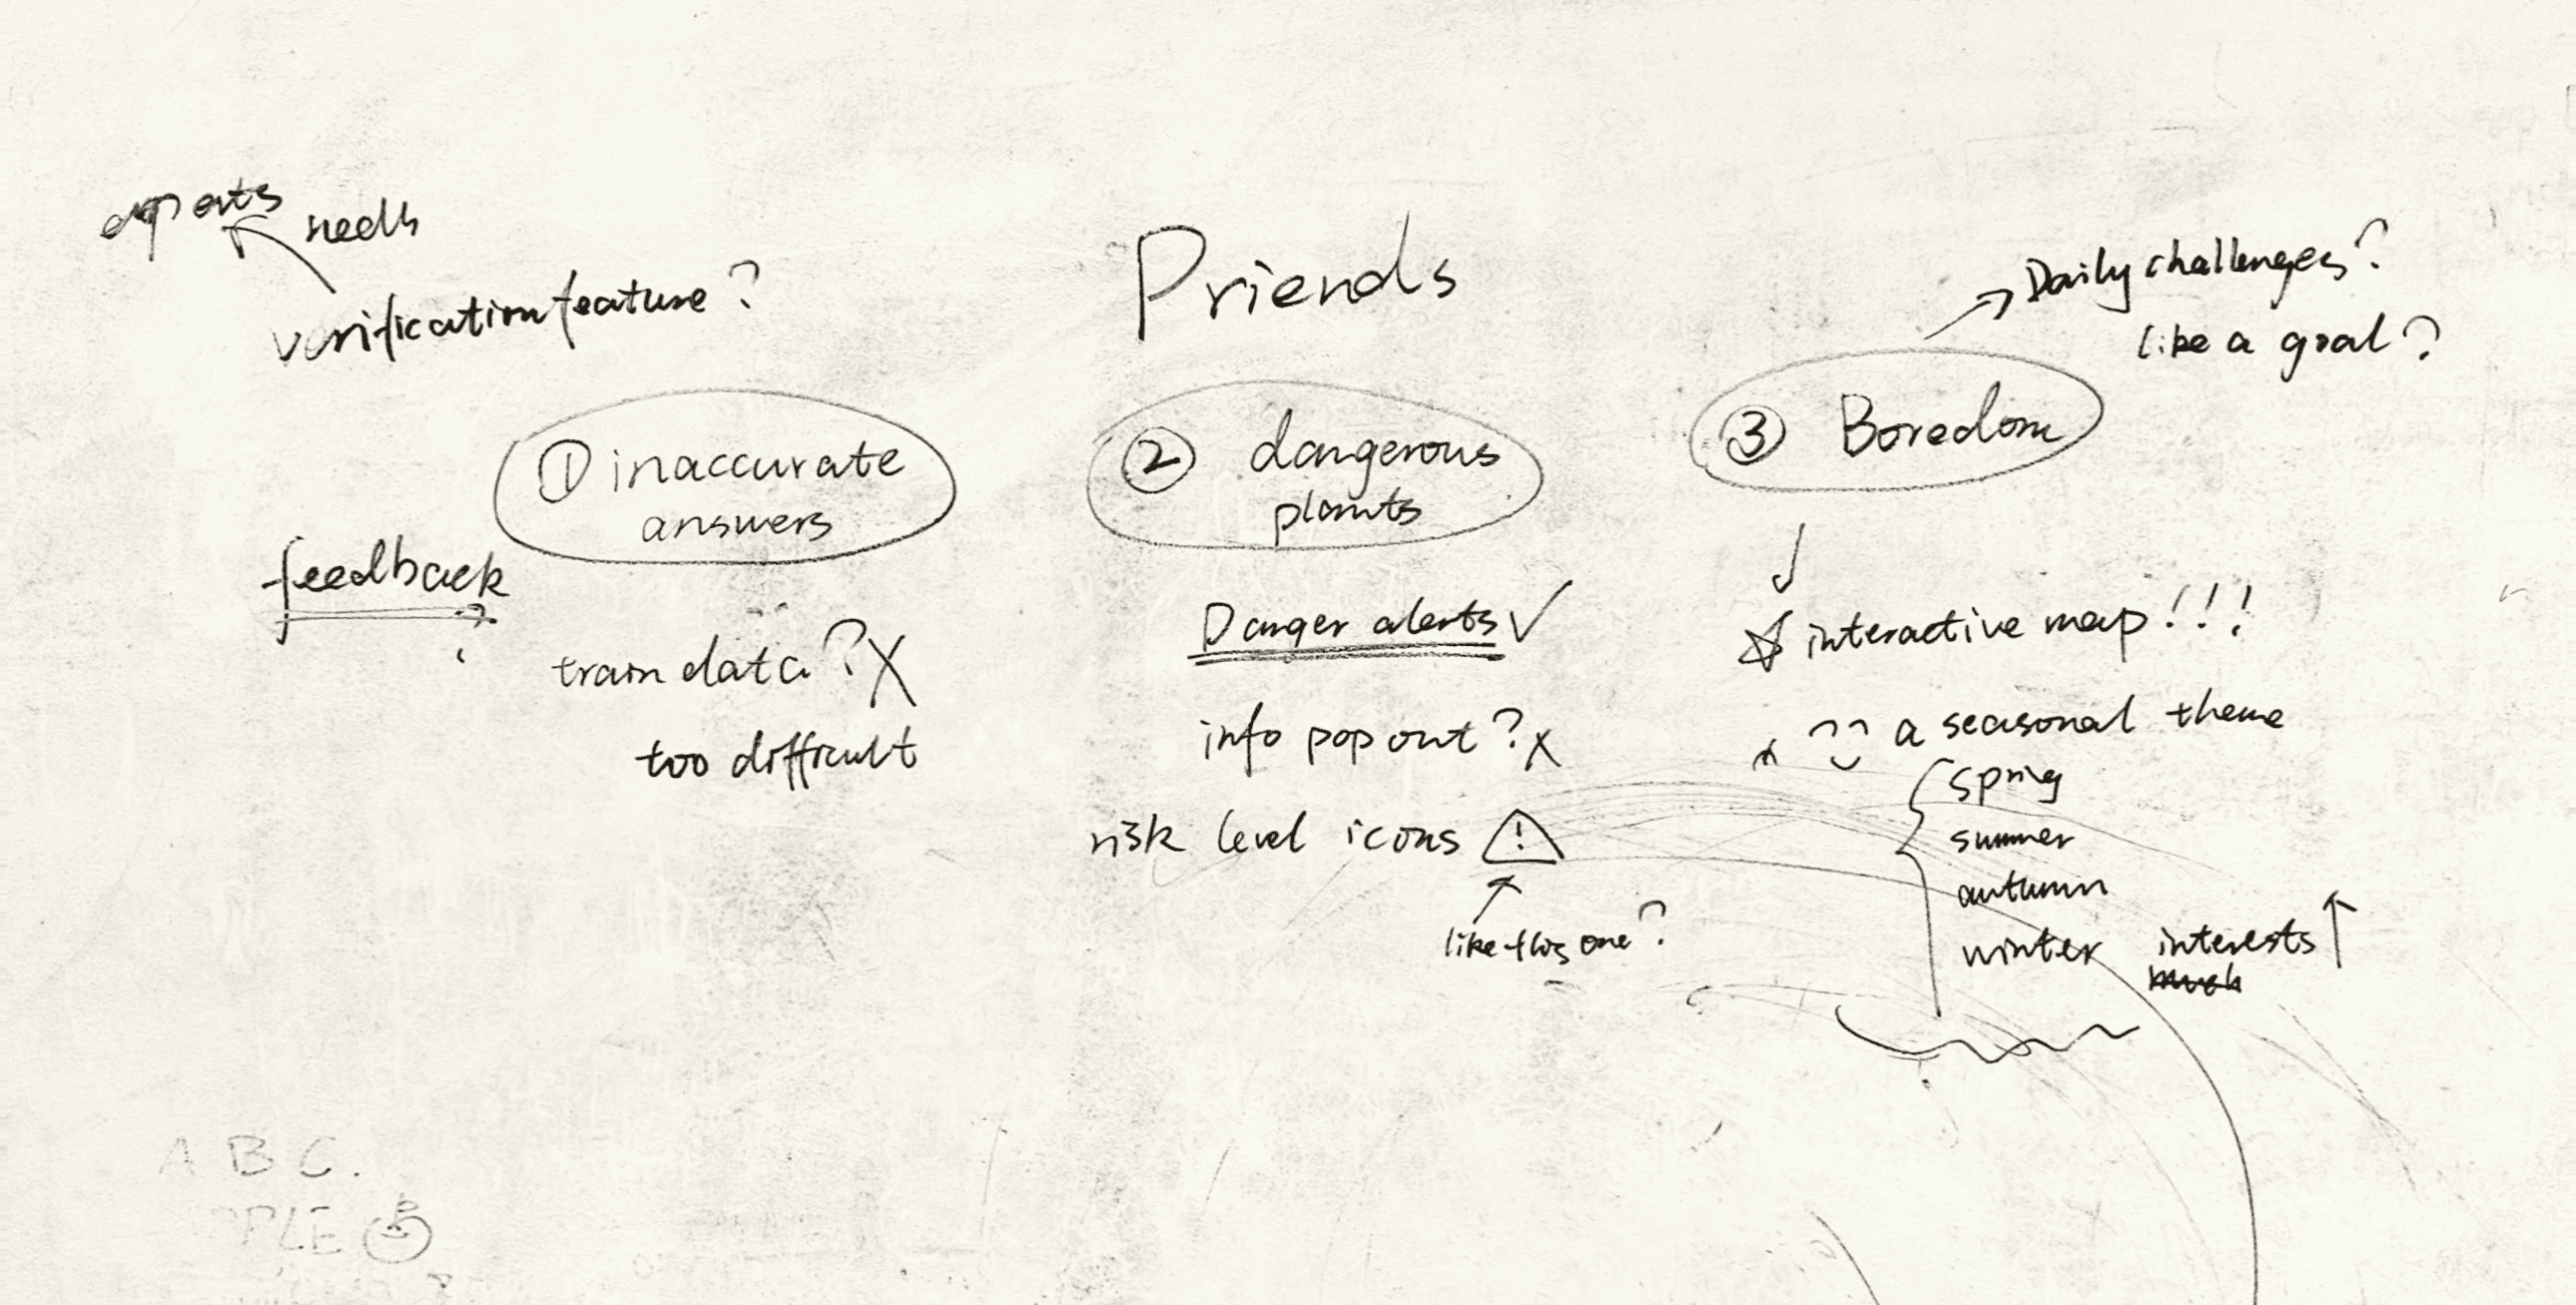 experts
needs
verification feature?
Priends
Daily challenges?
like a goal?
① inaccurate
answers
② dangerous
plants
③ Boredom
feedback
train data? X
too difficult
Danger alerts ✓
info pop out? x
risk level icons ⚠
like this one?
☆ interactive map!!!
a seasonal theme
spring
summer
autumn
winter
interests ↑
A B C.
PLE